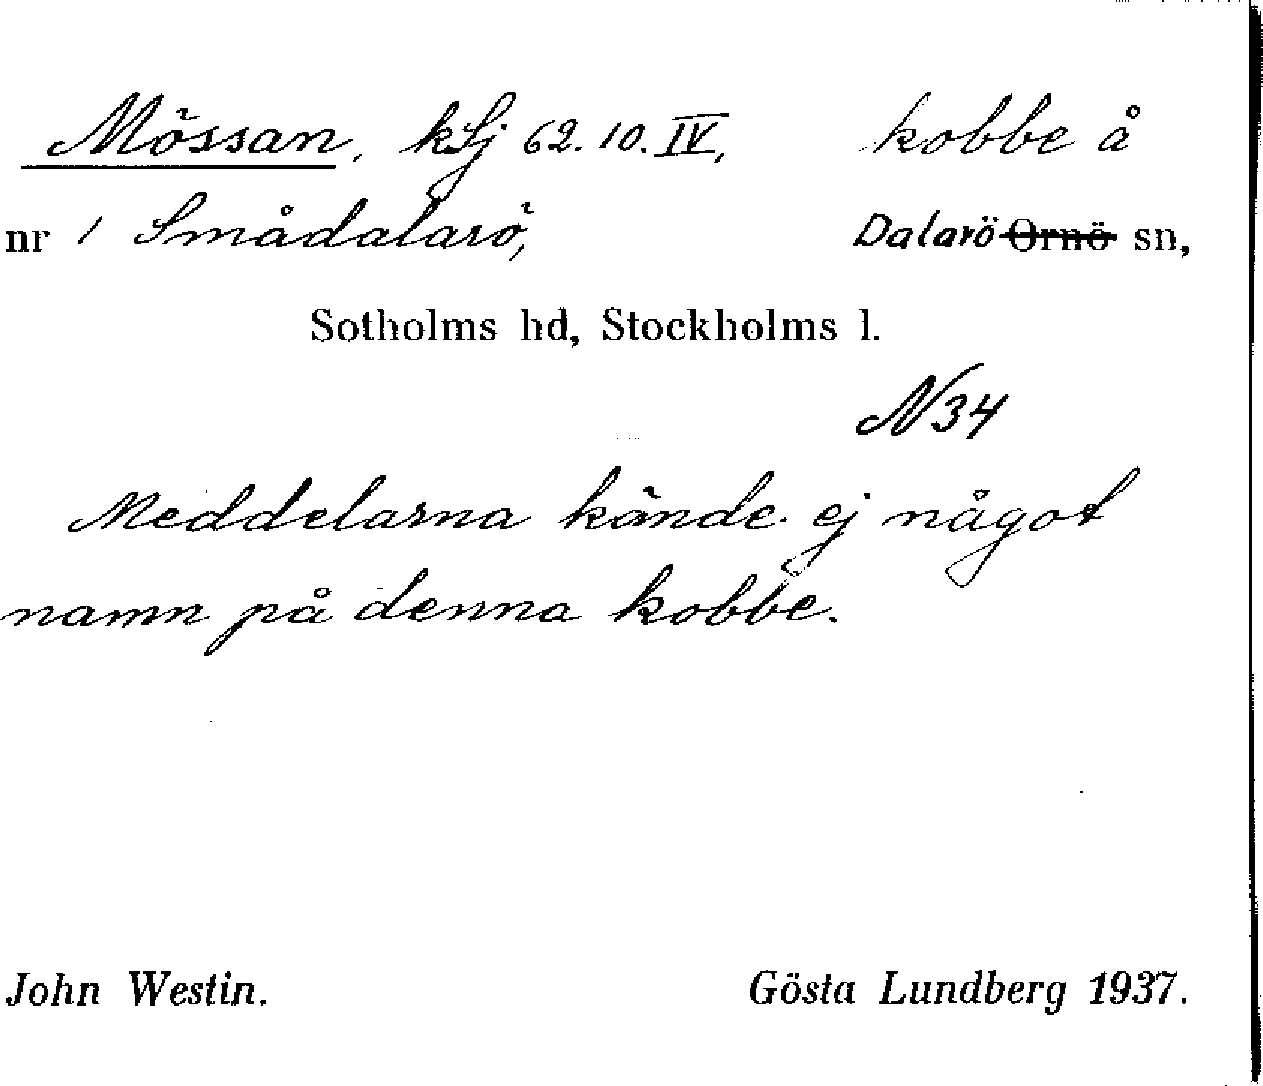 Mössan, kSj 62.10.IV, kobbe å
nr 1 Smådalarö, Dalarö Ornö sn,
Sotholms hd, Stockholms l.
N34
Meddelarna kände ej något
namn på denna kobbe.
John Westin. Gösta Lundberg 1937.